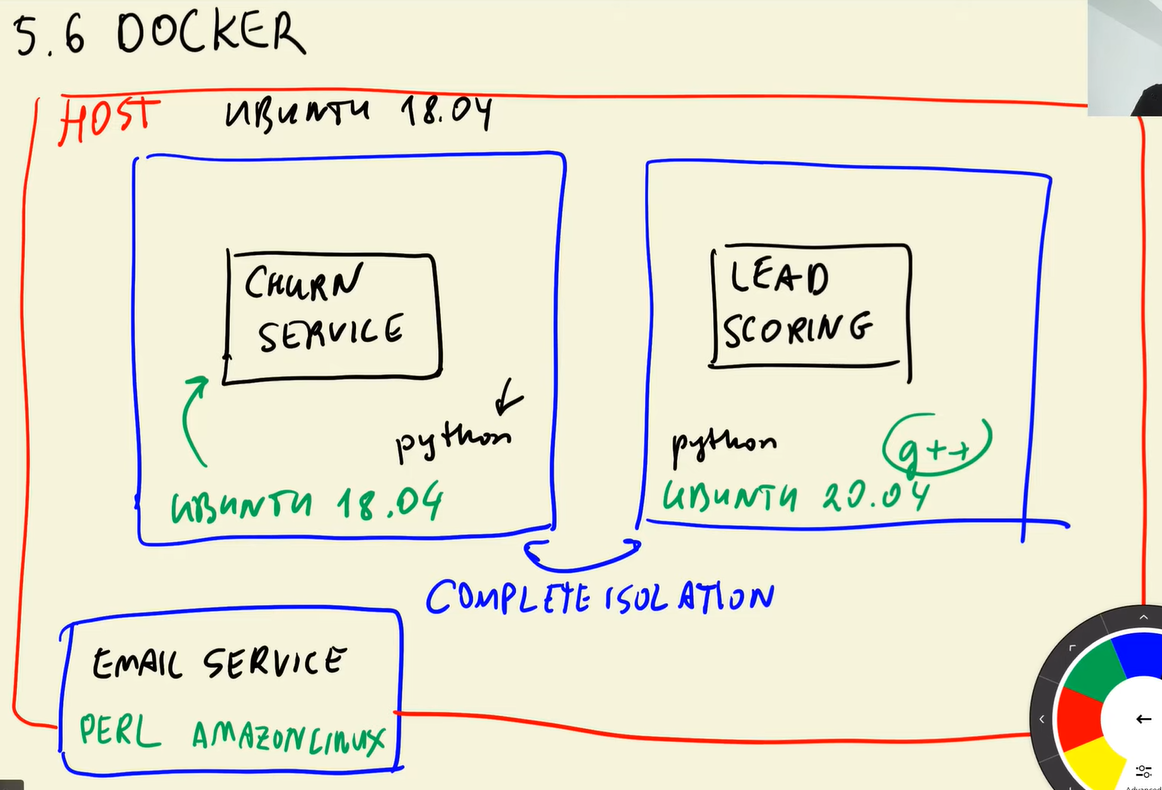 5.6 DOCKER
HOST UBUNTU 18.04
CHURN
SERVICE
python
UBUNTU 18.04
LEAD
SCORING
python g++
UBUNTU 20.04
COMPLETE ISOLATION
EMAIL SERVICE
PERL AMAZON LINUX